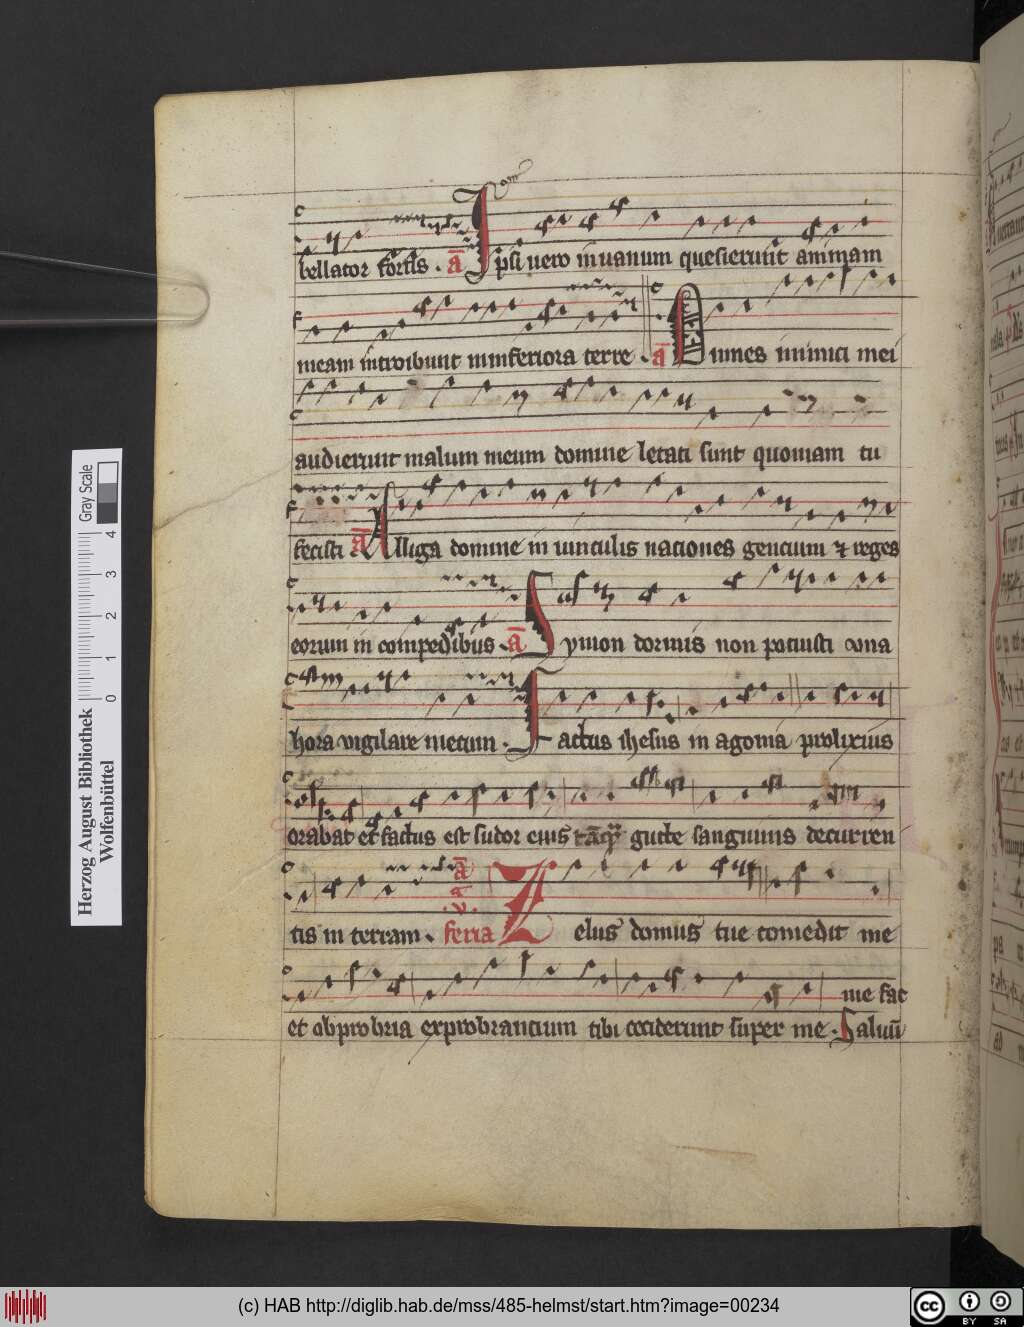 bellator fortis . a Ipsi vero in vanum quesierunt animam
meam introibunt in inferiora terre . a Omnes inimici mei
audierunt malum meum domine letati sunt quoniam tu
fecisti a Alliga domine in vinculis naciones gencium ⁊ reges
eorum in compedibus . a Symon dormis non potuisti vna
hora vigilare mecum . Factus ihesus in agonia prolixius
orabat et factus est sudor eius gutte sanguinis decurren
tis in terram . feria v a Zelus domus tue comedit me
me fac
et obprobria exprobrancium tibi ceciderunt super me . Saluū
Herzog August Bibliothek
Wolfenbüttel
0 1 2 3 4
Gray Scale
(c) HAB http://diglib.hab.de/mss/485-helmst/start.htm?image=00234
cc BY SA